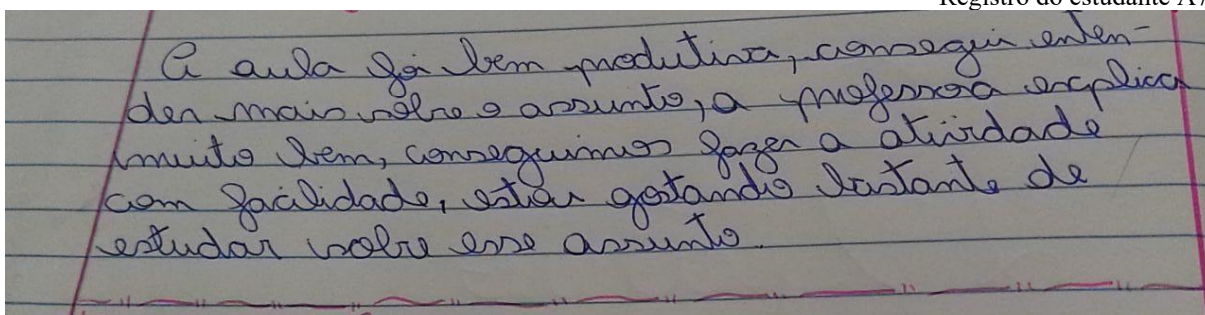 Registro do estudante A7
A aula foi bem produtiva, consegui enten-
der mais sobre o assunto, a professora explica
muito bem, conseguimos fazer a atividade
com facilidade, estou gostando bastante de
estudar sobre esse assunto.